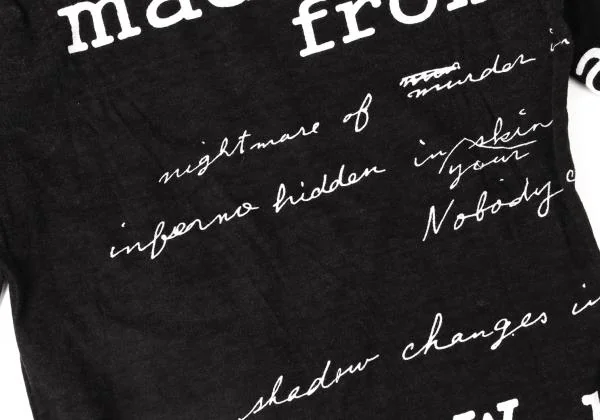 mad from
nightmare of murder in
inferno hidden in skin
your
Nobody
shadow changes in